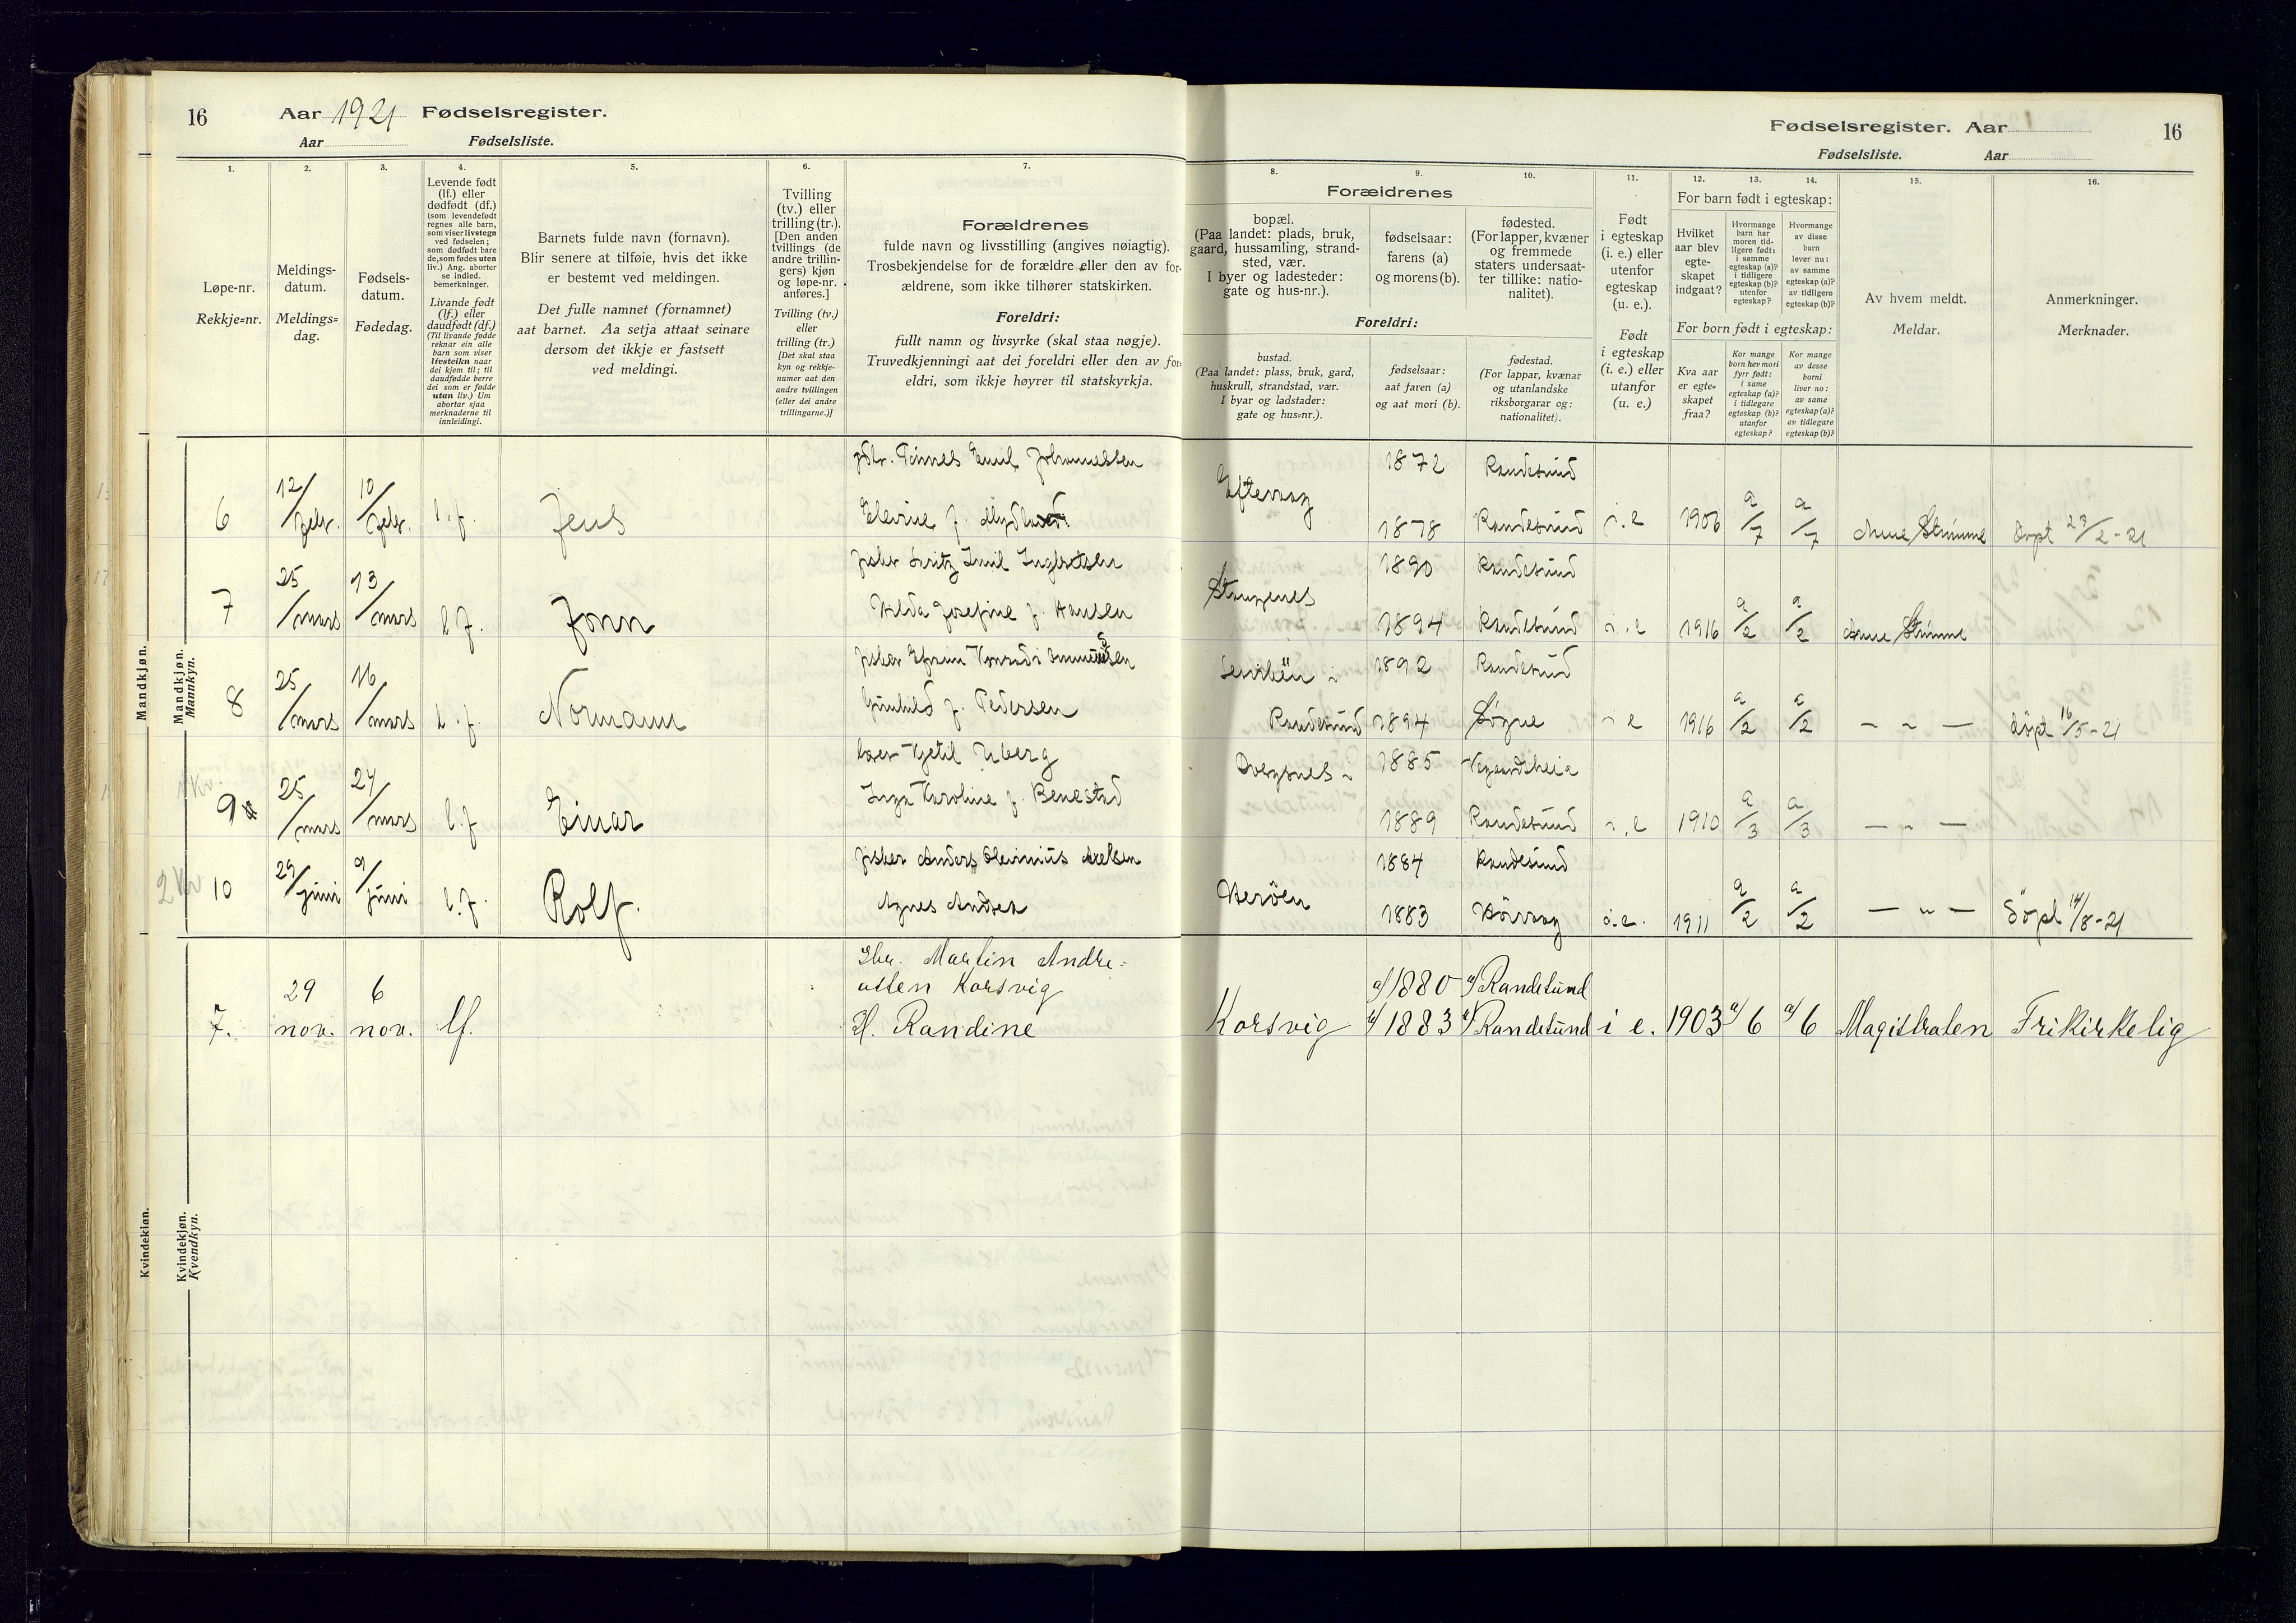 16 Aar 1921 Fødselsregister.
Aar Fødselsliste.
Fødselsregister. Aar 16
Fødselsliste. Aar
1. 2. 3. 4. 5. 6. 7.
Løpe-nr.
Rekkje=nr.
Meldings-
datum.
Meldings=
dag.
Fødsels-
datum.
Fødedag.
Levende født
(lf.) eller
dødfødt (df.)
(som levendefødt
regnes alle barn,
som viser livstegn
ved fødselen;
som dødfødt bare
de, som fødes uten
liv.) Ang. aborter
se indled.
bemerkninger.
Livande født
(lf.) eller
daudfødt (df.)
(Til livande fødde
reknar ein alle
barn som viser
livsteikn naar
dei kjem til; til
daudfødde berre
dei som er fødde
utan liv.) Um
abortar sjaa
merknaderne til
innleidingi.
Barnets fulde navn (fornavn).
Blir senere at tilføie, hvis det ikke
er bestemt ved meldingen.
Det fulle namnet (fornamnet)
aat barnet. Aa setja attaat seinare
dersom det ikkje er fastsett
ved meldingi.
Tvilling
(tv.) eller
trilling (tr.).
[Den anden
tvillings (de
andre trillin-
gers) kjøn
og løpe-nr.
anføres.]
Tvilling (tv.)
eller
trilling (tr.)
[Det skal staa
kyn og rekkje-
numer aat den
andre tvillingen
(eller dei andre
trillingarne.)]
Forældrenes
fulde navn og livsstilling (angives nøiagtig).
Trosbekjendelse for de forældre eller den av for-
ældrene, som ikke tilhører statskirken.
Foreldri:
fullt namn og livsyrke (skal staa nøgje).
Truvedkjenningi aat dei foreldri eller den av for-
eldri, som ikkje høyrer til statskyrkja.
8. 9. 10. 11. 12. 13. 14. 15. 16.
Forældrenes
bopæl.
(Paa landet: plads, bruk,
gaard, hussamling, strand-
sted, vær.
I byer og ladesteder:
gate og hus-nr.).
fødselsaar:
farens (a)
og morens (b).
fødested.
(For lapper, kvæner
og fremmede
staters undersaat-
ter tillike: natio-
nalitet).
Foreldri:
bustad.
(Paa landet: plass, bruk, gard,
huskrull, strandstad, vær.
I byar og ladstader:
gate og hus=nr.).
fødselsaar:
aat faren (a)
og aat mori (b).
fødestad.
(For lappar, kvænar
og utanlandske
riksborgarar og:
nationalitet).
Født
i egteskap
(i. e.) eller
utenfor
egteskap
(u. e.).
Født
i egteskap
(i. e.) eller
utanfor
(u. e.)
For barn født i egteskap:
Hvilket
aar blev
egte-
skapet
indgaat?
Hvormange
barn har
moren tid-
ligere født:
i samme
egteskap (a)?
i tidligere
egteskap (b)?
utenfor
egteskap?
Hvormange
av disse
barn
lever nu:
av samme
egteskap (a)?
av tidligere
egteskap (b)?
For born født i egteskap:
Kva aar
er egte=
skapet
fraa?
Kor mange
born hev mori
fyrr født:
i same
egteskap (a)?
i tidlegare
egteskap (b)?
utanfor
egteskap?
Kor mange
av desse
borni
liver no:
av same
egteskap (a)?
av tidlegare
egteskap (b)?
Av hvem meldt.
Meldar.
Anmerkninger.
Merknader.
Mandkjøn.
Mandkjøn.
Mannkyn.
Emil Johannessen 1872 Randesund
6 12/febr. 10/febr. l.f. Jens Eftevaag 1878 Randesund i.e 1906 a/7 a/7 Anne Strømme døpt 27/2-21
1890 Randesund
7 25/mars 13/mars l f. John Josefine f. Hansen Stangenes 1894 Randesund i.e 1916 a/2 a/2 Anne Strømme
fisker 1892 Randesund
8 25/mars 16/mars l.f. Normann Gunhild f. Pedersen Randesund 1894 Søgne i e 1916 a/2 a/2 — " — døpt 16/5-21
Kjetil Uberg Dvergsnes 1885 Vegusdsheia
9 25/mars 24/mars l.f Einar Inga Karoline f. Benestad 1889 Randesund i.e 1910 a/3 a/3 — " —
fisker Anders Axelsen 1884 Randesund
2 Kv 10 29/juni 9/juni l.f. Rolf. Agnes Herøen 1883 i.e. 1911 a/2 a/2 — " — Døpt 14/8-21
Gbr. Martin Andre-
assen Korsvig a/1880 a/Randesund
7. 29 nov. 6 nov. lf. H. Randine Korsvig b/1883 b/Randesund i e. 1903 a/6 a/6 Magistraten Frikirkelig
Kvindekjøn.
Kvindekjøn.
Kvendkyn.